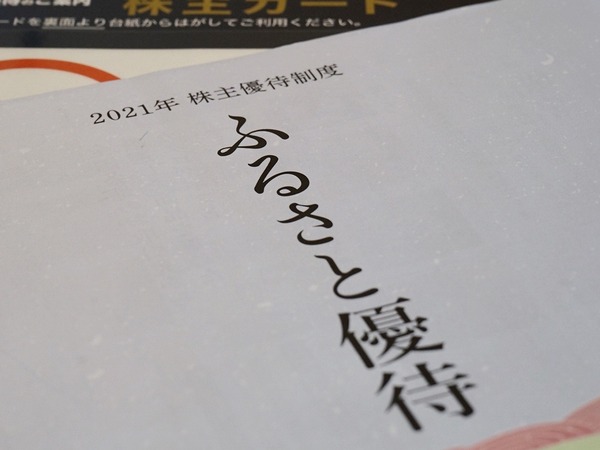 ご案内
株主カード
ードを裏面より台紙からはがしてご利用ください。
2021年 株主優待制度
ふるさと優待